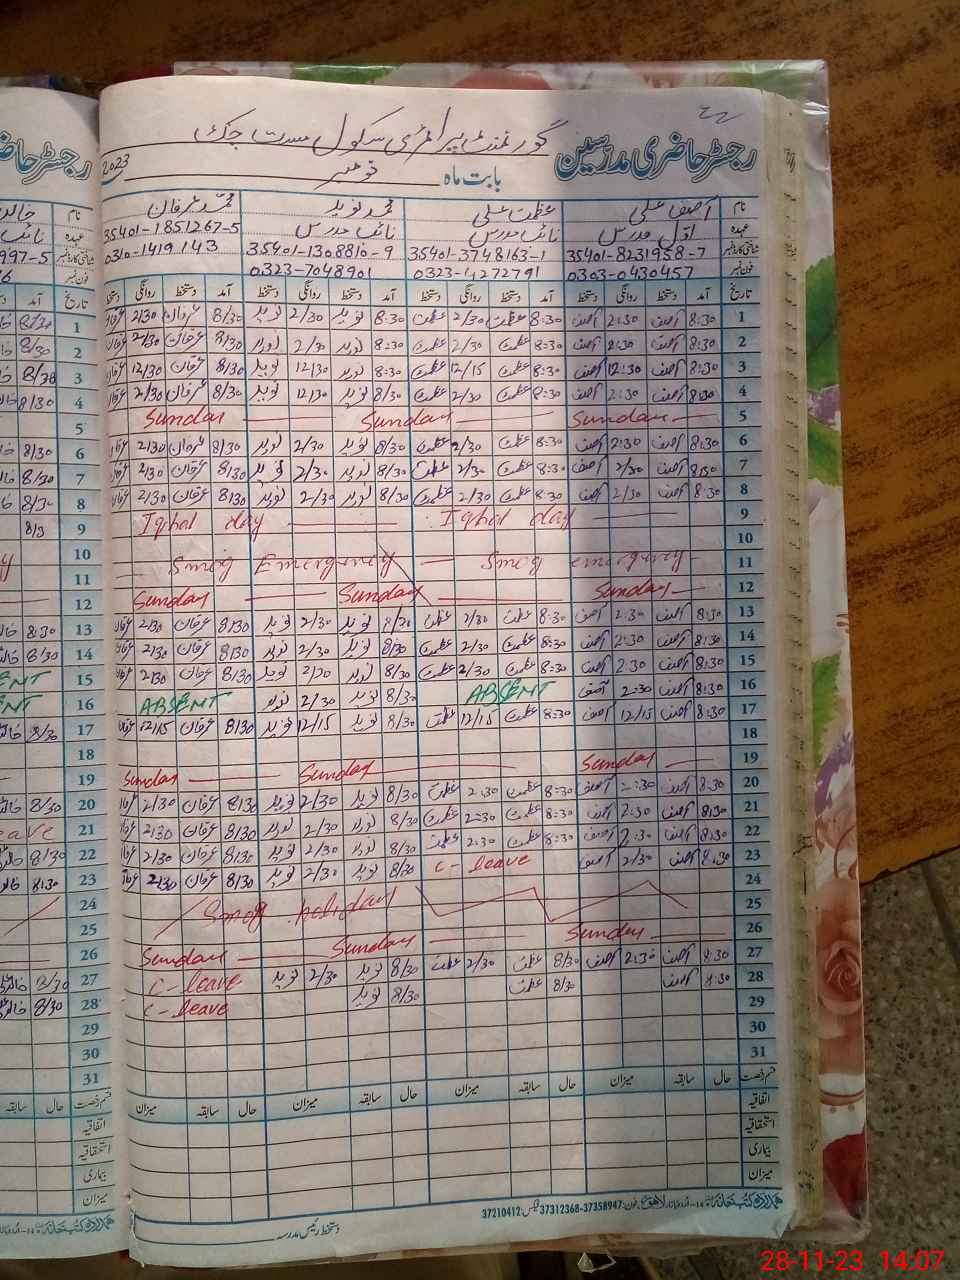 رجسٹر حاضری مدرسین گورنمنٹ پرائمری سکول مست چک
بابت ماہ نومبر 2023
نام آصف علی عظمت علی محمد نوید محمد عرفان
عہدہ اول مدرس نائب مدرس نائب مدرس
شناختی کارڈ نمبر 35401-8231958-7 35401-3748163-1 35401-1308810-9 35401-1851267-5
فون نمبر 0303-0430457 0323-4272791 0323-7048901 0310-1419143
تاریخ آمد دستخط روانگی دستخط آمد دستخط روانگی دستخط آمد دستخط روانگی دستخط آمد دستخط روانگی دستخط
1 8:30 آصف 2:30 آصف 8:30 عظمت 2/30 عظمت 8:30 نوید 2/30 نوید 8/30 عرفان 2/30
2 8:30 آصف 2:30 آصف 8:30 عظمت 2/30 عظمت 8:30 نوید 2/30 نوید 8/30 عرفان 2/30
3 8:30 آصف 12:30 آصف 8:30 عظمت 12/15 عظمت 8:30 نوید 12/30 نوید 8/30 عرفان 12/30
4 8:30 آصف 2:30 آصف 8:30 عظمت 2/30 عظمت 8/30 نوید 12/30 نوید 8/30 عرفان 2/30
5 Sunday Sunday Sunday
6 8:30 آصف 2:30 آصف 8:30 عظمت 2/30 عظمت 8/30 نوید 2/30 نوید 8/30 عرفان 2/30
7 8:30 آصف 2/30 آصف 8:30 عظمت 2/30 عظمت 8/30 نوید 2/30 نوید 8/30 عرفان 2/30
8 8:30 آصف 2/30 آصف 8:30 عظمت 2/30 عظمت 8/30 نوید 2/30 نوید 8/30 عرفان 2/30
9 Iqbal day Iqbal day
10
11 Smog Emergency Smog emergency
12 Sunday Sunday Sunday
13 8:30 آصف 2:30 آصف 8:30 عظمت 2/30 عظمت 8/30 نوید 2/30 نوید 8/30 عرفان 2/30
14 8:30 آصف 2:30 آصف 8:30 عظمت 2/30 عظمت 8/30 نوید 2/30 نوید 8/30 عرفان 2/30
15 8:30 آصف 2:30 آصف 8:30 عظمت 2/30 عظمت 8/30 نوید 2/30 نوید 8/30 عرفان 2/30
16 8:30 آصف 2:30 آصف ABSENT 8/30 نوید 2/30 نوید ABSENT
17 8:30 آصف 12/15 آصف 8:30 عظمت 12/15 عظمت 8/30 نوید 12/15 نوید 8/30 عرفان 12/15
18
19 Sunday Sunday Sunday
20 8:30 آصف 2:30 آصف 8:30 عظمت 2:30 عظمت 8/30 نوید 2/30 نوید 8/30 عرفان 2/30
21 8:30 آصف 2:30 آصف 8:30 عظمت 2:30 عظمت 8/30 نوید 2/30 نوید 8/30 عرفان 2/30
22 8:30 آصف 2:30 آصف 8:30 عظمت 2:30 عظمت 8/30 نوید 2/30 نوید 8/30 عرفان 2/30
23 8:30 آصف 2/30 آصف C-leave 8/30 نوید 2/30 نوید 8/30 عرفان 2:30
24
25 Smog holiday
26 Sunday Sunday Sunday
27 8:30 آصف 2:30 آصف 8/30 عظمت 2/30 عظمت 8/30 نوید 2/30 نوید C-leave
28 8:30 آصف 8/30 عظمت 8/30 نوید C-leave
29
30
31
قسم رخصت حال سابقہ میزان حال سابقہ میزان حال سابقہ میزان حال سابقہ میزان
اتفاقیہ
استحقاقیہ
بیماری
میزان
ہمدرد کتب خانہ اردو بازار لاہور فون: 37358947-37312368 فیکس: 37210412
دستخط رئیس مدرسہ
28-11-23 14:07